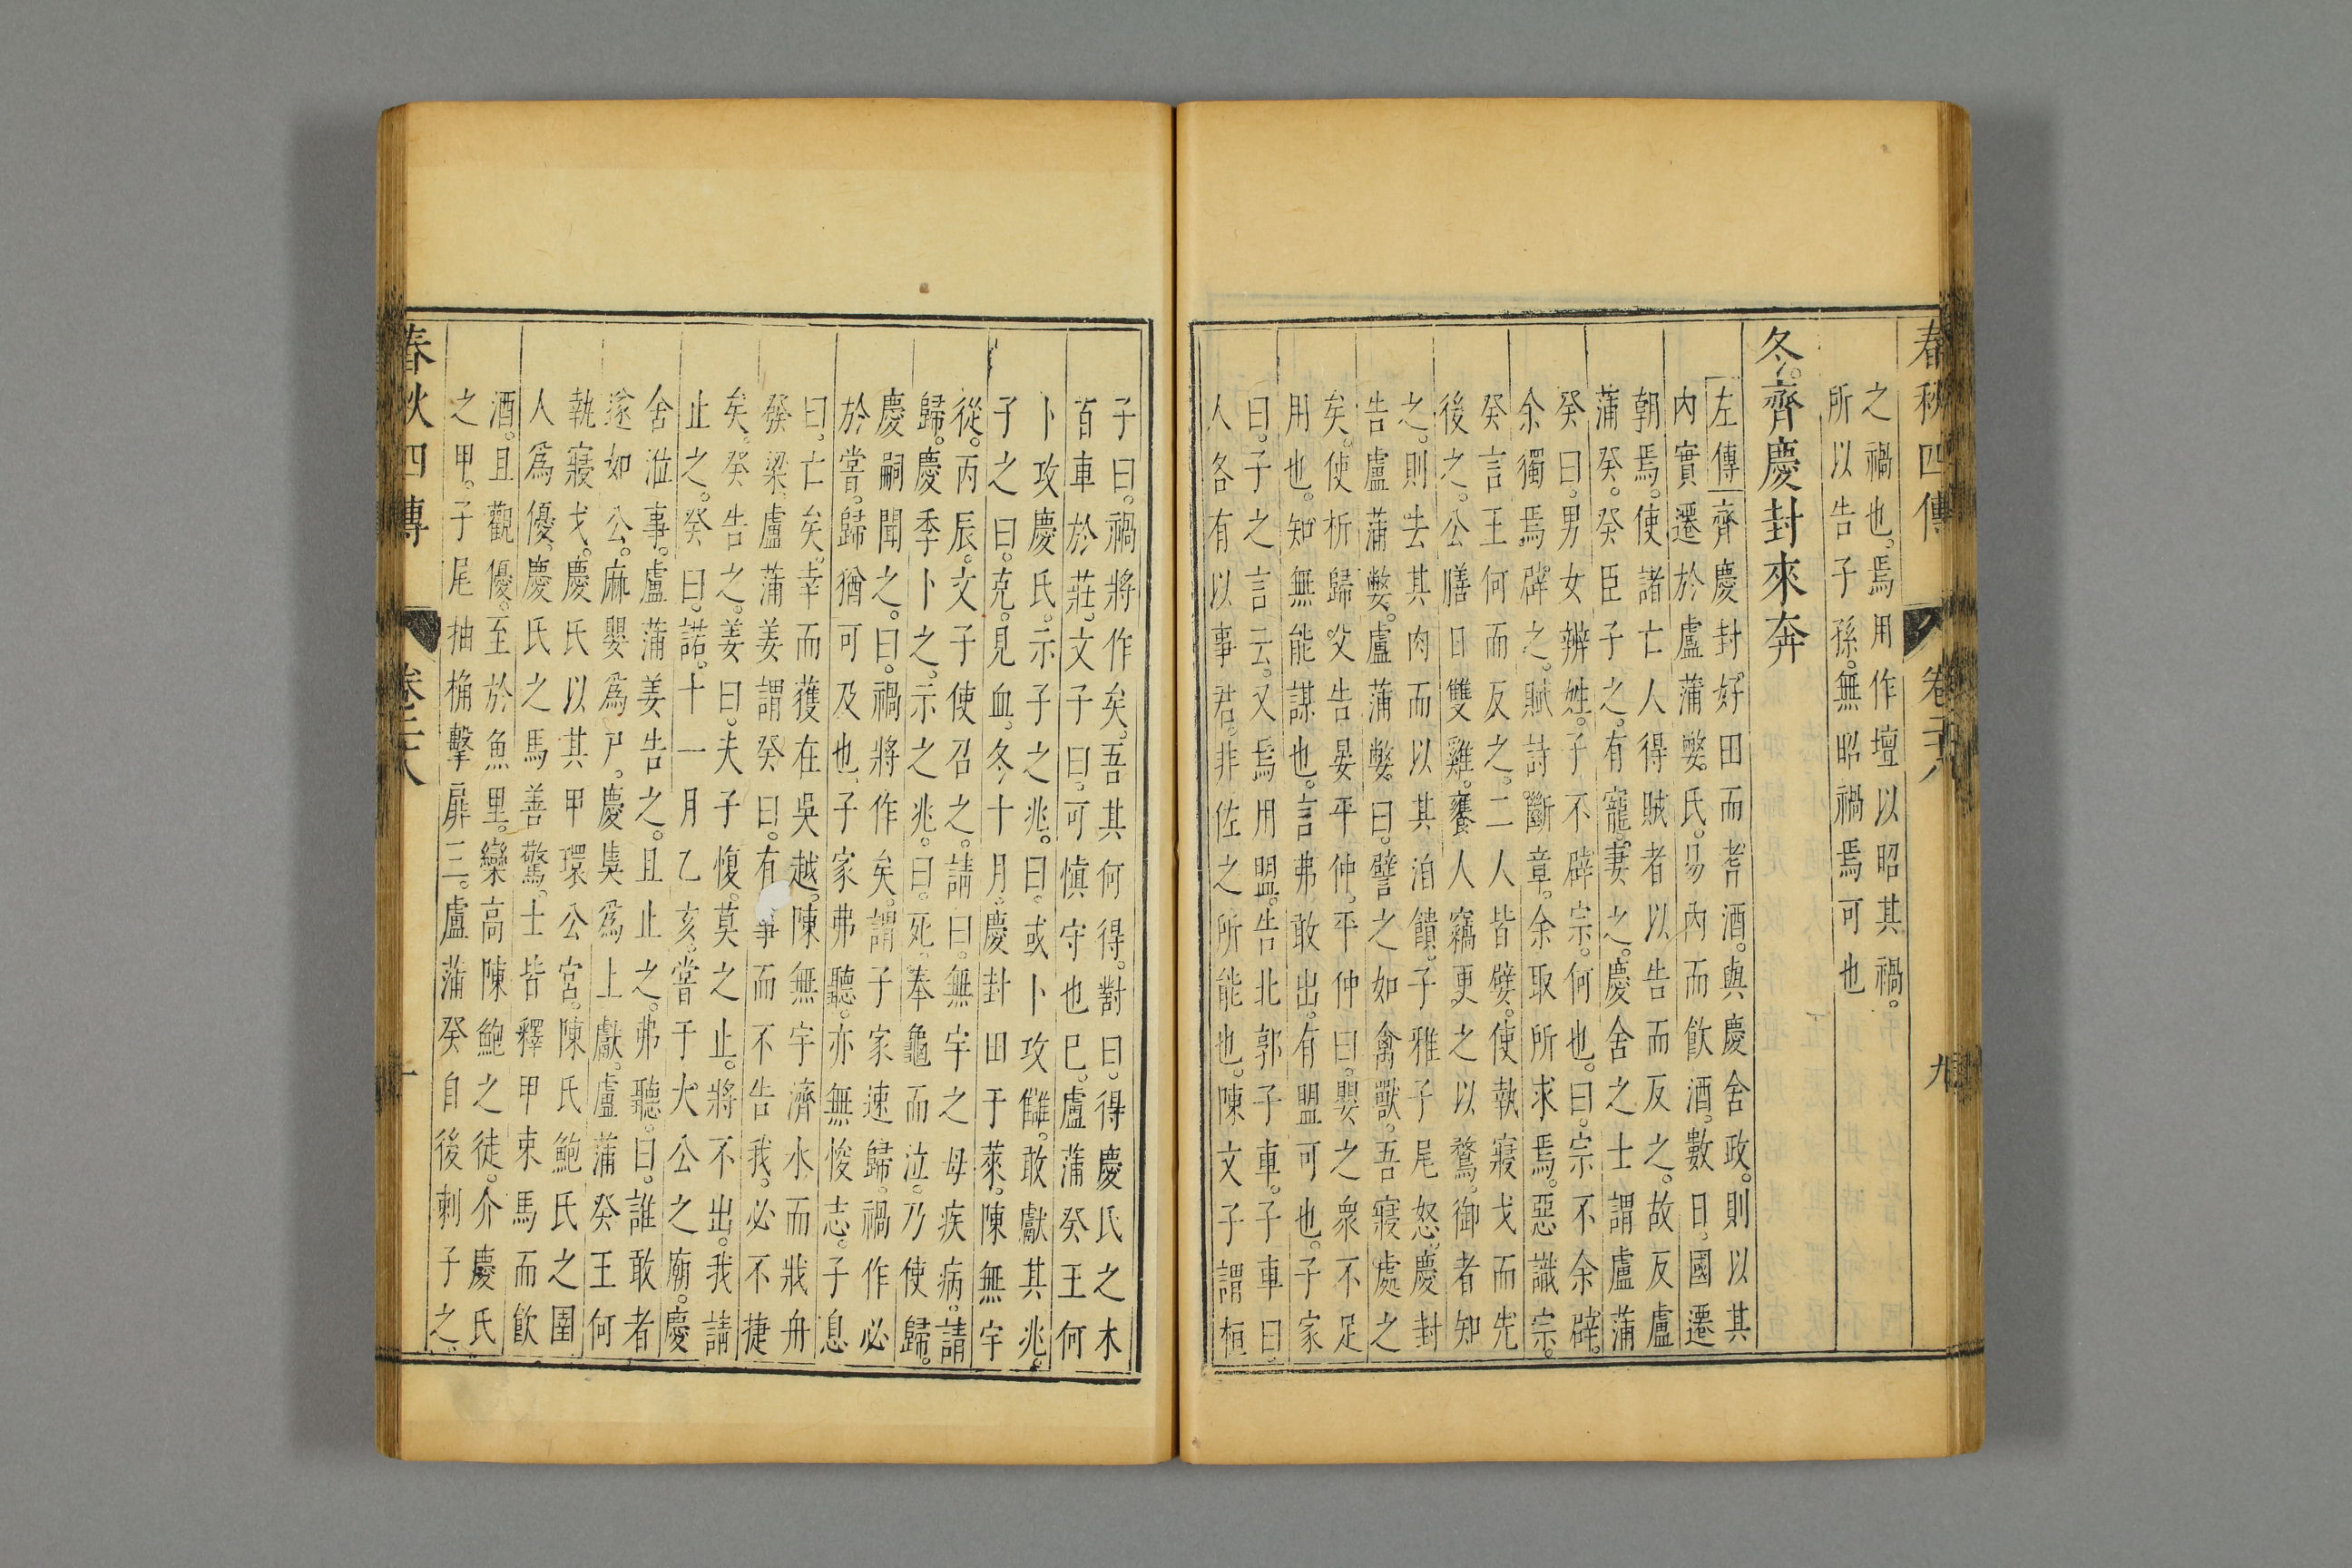 春秋四傳 卷二十八 九
之禍也。焉用作壇以昭其禍。
所以告子孫。無昭禍焉可也
冬。齊慶封來奔
左傳齊慶封好田而耆酒。與慶舍政。則以其
內實遷於盧蒲嫳氏。易內而飲酒。數日。國遷
朝焉。使諸亡人得賊者以告而反之。故反盧
蒲癸。癸臣子之。有寵。妻之。慶舍之士謂盧蒲
癸曰。男女辨姓。子不辟宗。何也。曰。宗不余辟。
余獨焉辟之。賦詩斷章。余取所求焉。惡識宗。
癸言王何而反之。二人皆嬖。使執寢戈而先
後之。公膳日雙雞。饔人竊更之以鶩。御者知
之。則去其肉而以其洎饋。子雅子尾怒。慶封
告盧蒲嫳。盧蒲嫳曰。譬之如禽獸。吾寢處之
矣。使析歸父告晏平仲。平仲曰。嬰之衆不足
用也。知無能謀也。言弗敢出。有盟可也。子家
曰。子之言云。又焉用盟。告北郭子車。子車曰。
人各有以事君。非佐之所能也。陳文子謂桓
子曰。禍將作矣。吾其何得。對曰。得慶氏之木
百車於莊。文子曰。可慎守也巳。盧蒲癸王何
卜攻慶氏。示子之兆。曰。或卜攻讎。敢獻其兆。
子之曰。克。見血。冬。十月。慶封田于萊。陳無宇
從。丙辰。文子使召之。請曰。無宇之母疾病。請
歸。慶季卜之。示之兆。曰。死。奉龜而泣。乃使歸。
慶嗣聞之。曰。禍將作矣。謂子家速歸。禍作必
於嘗。歸猶可及也。子家弗聽。亦無悛志。子息
曰。亡矣。幸而獲在吳越。陳無宇濟水而戕舟
發梁。盧蒲姜謂癸曰。有事而不告我。必不捷
矣。癸告之。姜曰。夫子愎。莫之止。將不出。我請
止之。癸曰。諾。十一月乙亥。嘗于大公之廟。慶
舍涖事。盧蒲姜告之。且止之。弗聽。曰。誰敢者
遂如公。麻嬰爲尸。慶㚖爲上獻。盧蒲癸王何
執寢戈。慶氏以其甲環公宮。陳氏鮑氏之圉
人爲優。慶氏之馬善驚。士皆釋甲束馬而飲
酒。且觀優。至於魚里。欒高陳鮑之徒。介慶氏
之甲。子尾抽桷擊扉三。盧蒲癸自後刺子之。
春秋四傳 卷二十八